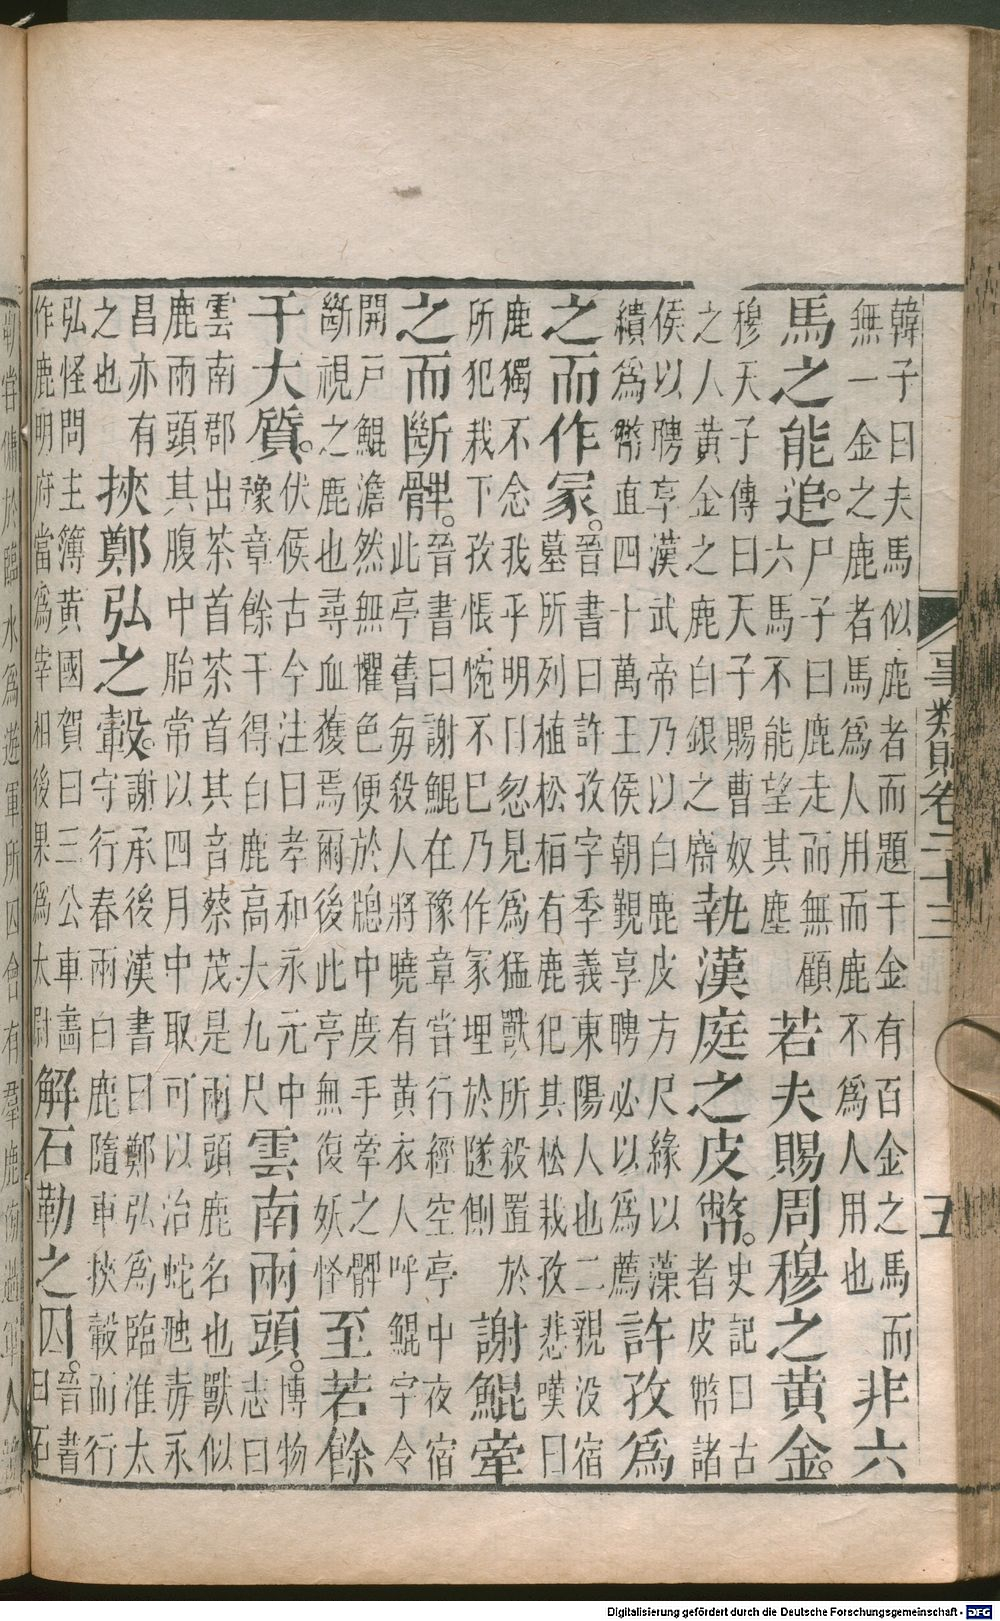 韓子曰夫馬似鹿者而題千金有百金之馬而
無一金之鹿者馬爲人用而鹿不爲人用也
非六
馬之能追。
尸子曰鹿走而無顧
六馬不能望其塵
若夫賜周穆之黄金。
穆天子傳曰天子賜曹奴
之人黃金之鹿白銀之麕
執漢庭之皮幣。
史記曰古
者皮幣諸
侯以聘享漢武帝乃以白鹿皮方尺緣以藻
繢爲幣直四十萬王侯朝覲享聘必以爲薦
許孜爲
之而作冢。
晉書曰許孜字季義東陽人也二親没宿
墓所列植松栢有鹿犯其松栽孜悲嘆曰
鹿獨不念我乎明日忽見爲猛獸所殺置於
所犯栽下孜悵惋不巳乃作冢埋於隧側
謝鯤牽
之而斷髀。
晉書曰謝鯤在豫章嘗行經空亭中夜宿
此亭舊毎殺人將曉有黃衣人呼鯤字令
開戸鯤澹然無懼色便於牕中度手牽之髀
斷視之鹿也尋血獲焉爾後此亭無復妖怪
至若餘
干大質。
伏侯古今注曰孝和永元中
豫章餘干得白鹿高大九尺
雲南兩頭。
博物
志曰
雲南郡出茶首茶首其音蔡茂是兩頭鹿名也獸似
鹿兩頭其腹中胎常以四月中取可以治蛇虺毒永
昌亦有
之也
挾鄭弘之轂。
謝承後漢書曰鄭弘爲臨淮太
守行春雨白鹿隨車挾轂而行
弘怪問主簿黃國賀曰三公車畵
作鹿明府當爲宰相後果爲太尉
解石勒之囚。
晉書
曰石
事類賦卷二十三
五
勒嘗傭於臨水爲遊軍所囚會有羣鹿傍過軍人
Digitalisierung gefördert durch die Deutsche Forschungsgemeinschaft - DFG